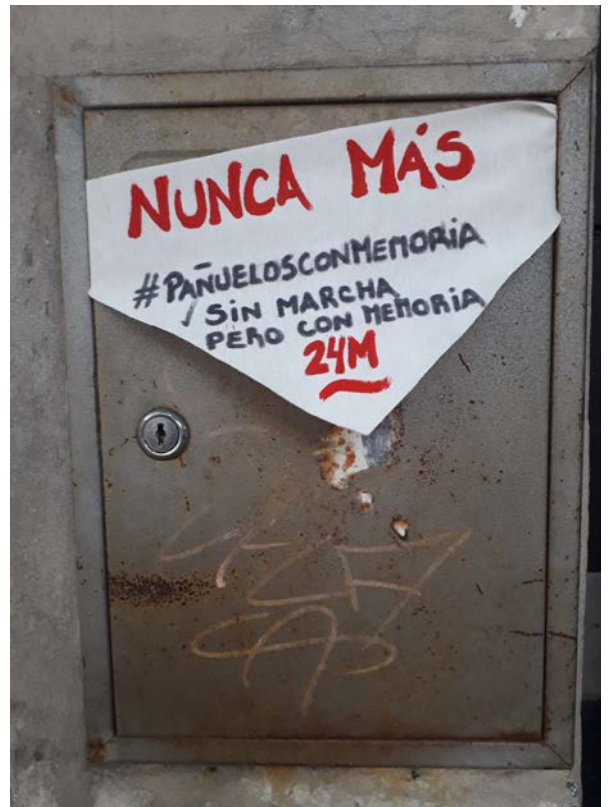 NUNCA MÁS
#PAÑUELOSCONMEMORIA
SIN MARCHA
PERO CON MEMORIA
24M